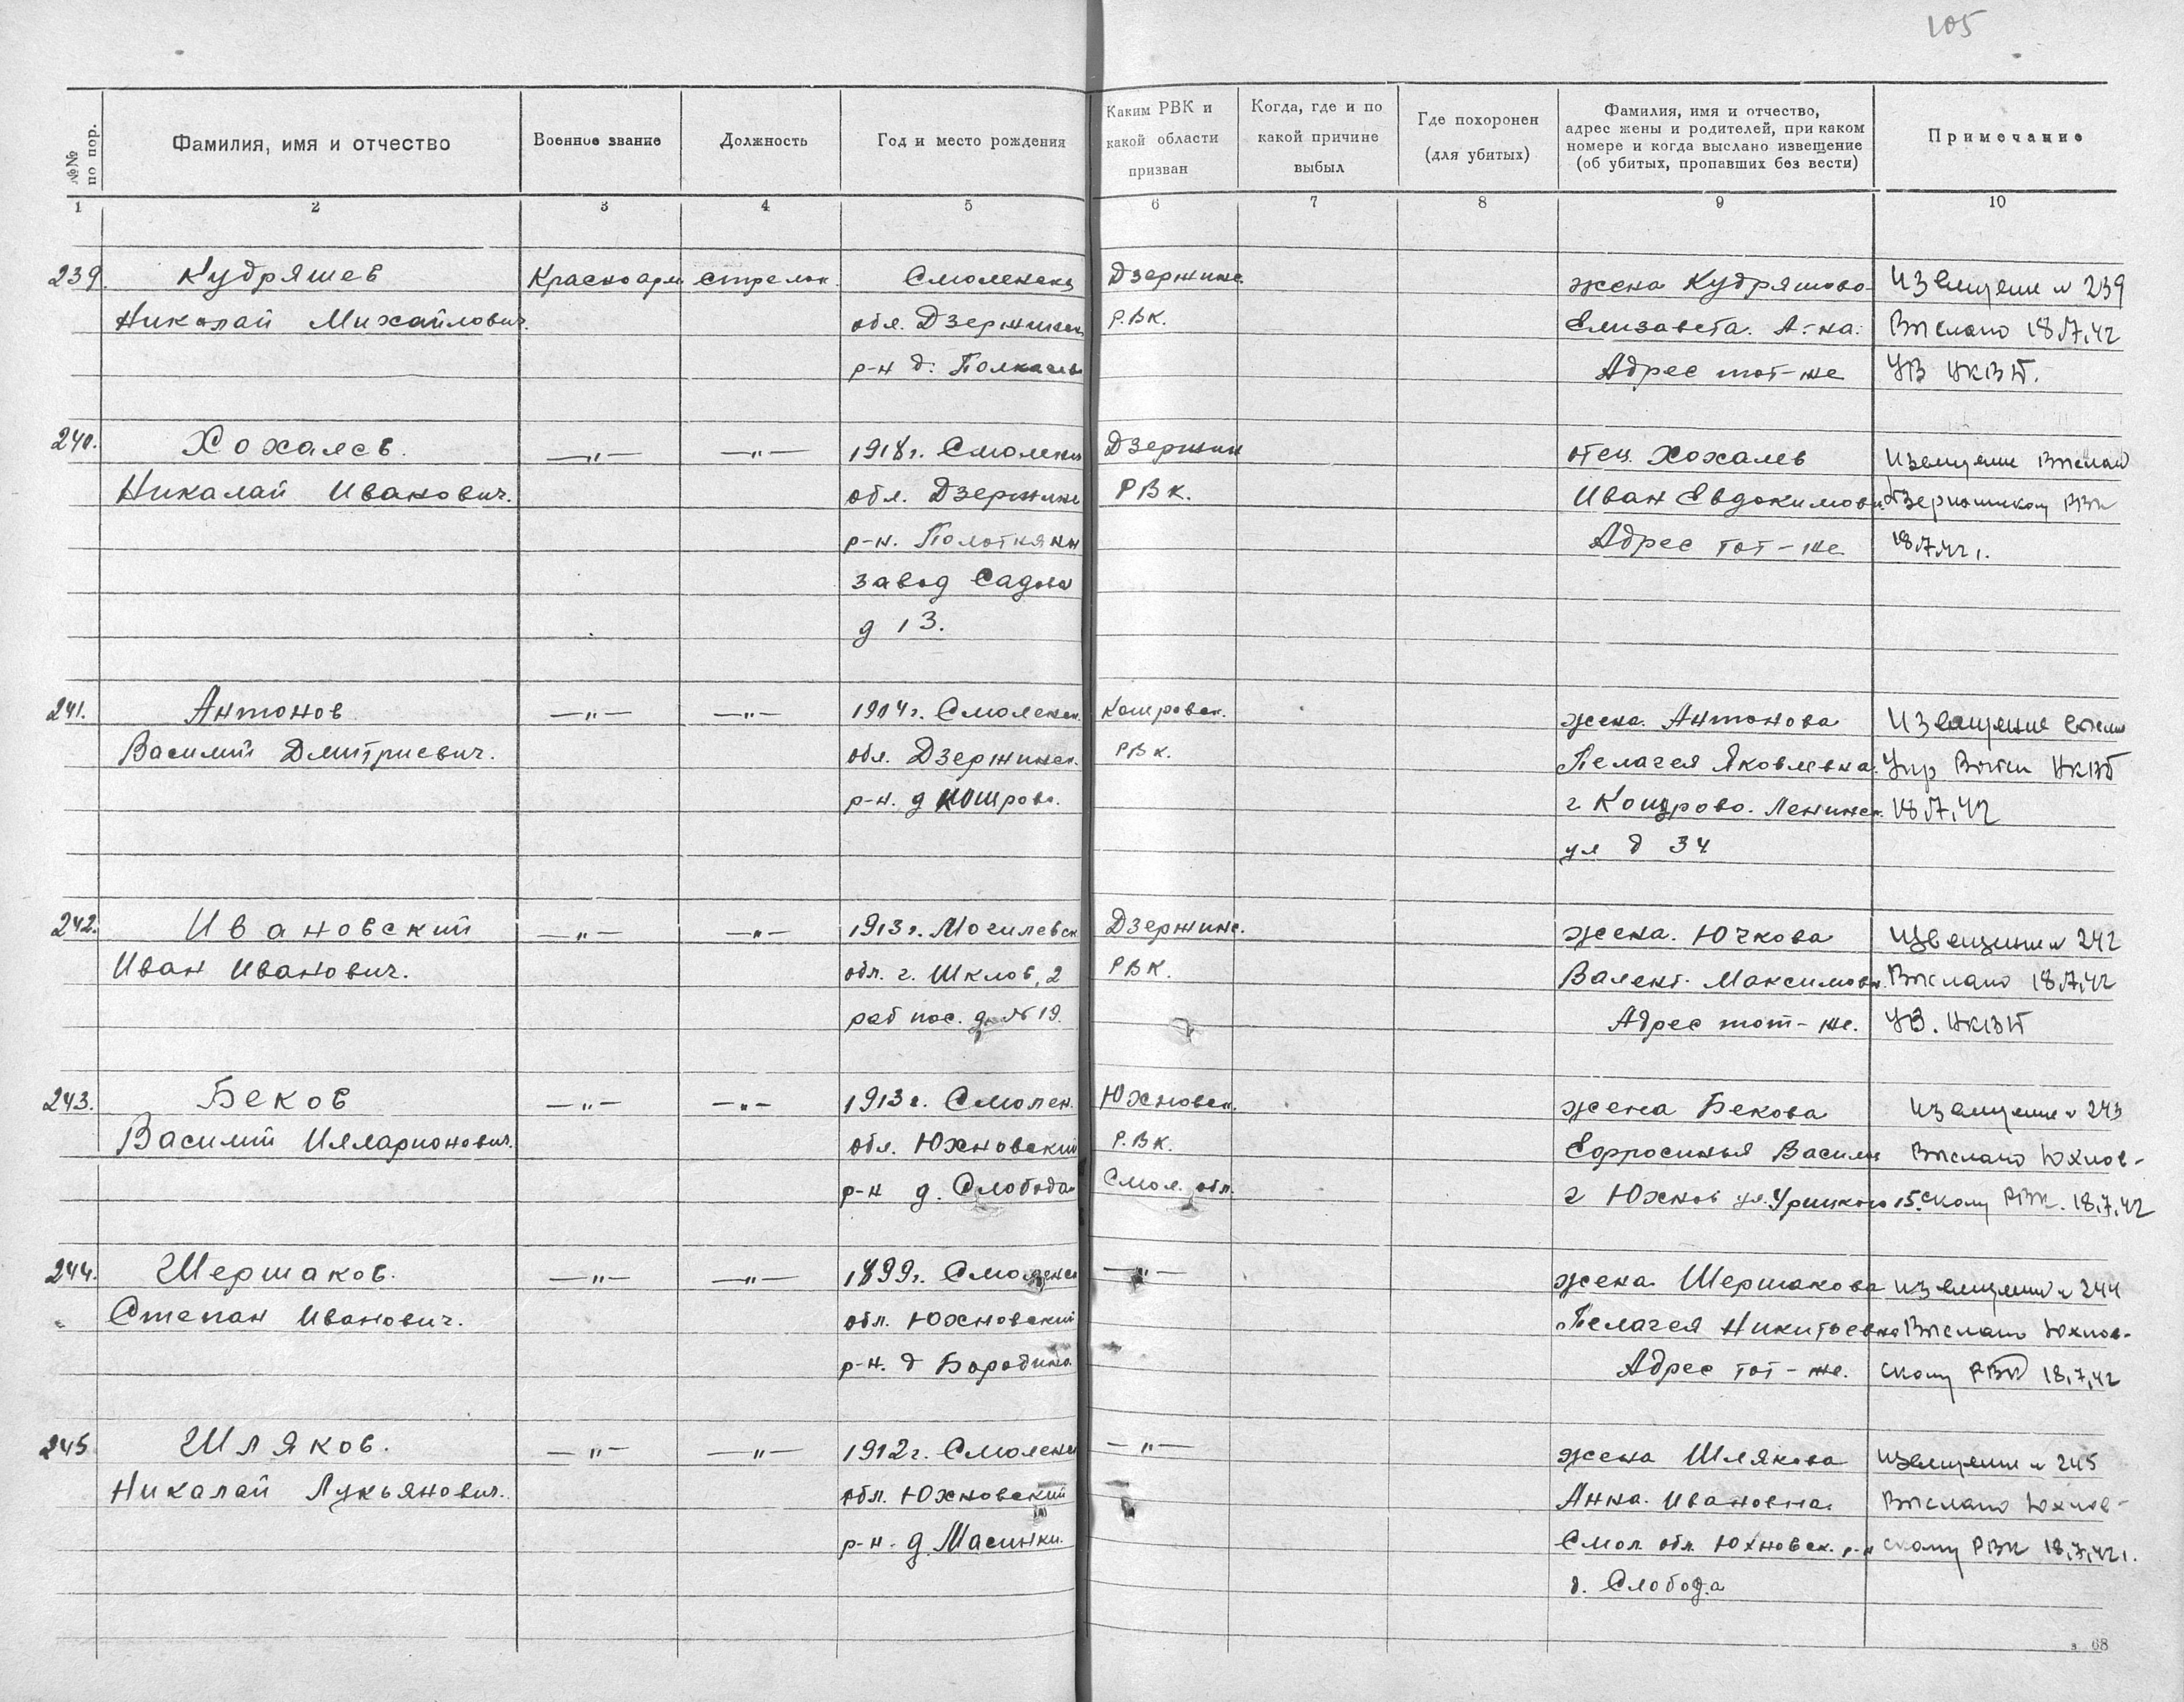 105
№№ по пор.
Фамилия, имя и отчество
Военное звание
Должность
Год и место рождения
Каким РВК и какой области призван
Когда, где и по какой причине выбыл
Где похоронен (для убитых)
Фамилия, имя и отчество, адрес жены и родителей, при каком номере и когда выслано извещение (об убитых, пропавших без вести)
Примечание
1 2 3 4 5 6 7 8 9 10
239. Кудряшев Красноарм. стрелок. Смоленск Дзержинс. жена Кудряшова Извещение № 239
Николай Михайлович. обл. Дзержинск Р.ВК. Елизавета. А-на. Выслано 18.7.42
р-н д. Адрес тот-же УВ НКВД.
240. Хохалев. —„— —„— 1918г. Смоленск Дзержин отец Хохалев Извещение выслано
Николай Иванович. обл. Дзержинс РВК. Иван Евдокимович. Дзержинскому РВК
р-н. Полотнян Адрес тот-же 18.7.42г.
завод Садова
д 13.
241. Антонов —„— —„— 1914г. Смоленск. Кондровск. жена Антонова Извещение высла
Василий Дмитриевич. обл. Дзержинск. РВК. Пелагея Яковлевна. Упр Войск НКВД
р-н. д Кондрово. г Кондрово. Ленинск. 18.7.42
ул д 34
242. Ивановский —„— —„— 1913г. Могилевск Дзержинс. жена. Ючкова Извещение № 242
Иван Иванович. обл. г. Шклов, 2 РВК. Валент. Максимовн. Выслано 18.7.42
раб пос. д. № 19. Адрес тот-же. УВ. НКВД
243. Беков —„— —„— 1913г. Смолен. Юхновск. жена Бекова Извещение № 243
Василий Илларионович. обл. Юхновский Р.ВК. Ефросинья Василь Выслано Юхнов-
р-н д. Слобода Смол. обл. г Юхнов ул. Урицкого 15. скому РВК. 18.7.42
244. Шершаков. —„— —„— 1899г. Смоленск —„— жена Шершакова Извещение № 244
Степан Иванович. обл. Юхновский Пелагея Никитьевна Выслано Юхнов-
р-н. д Бородино Адрес тот-же. скому РВК 18.7.42
245 Шляков. —„— —„— 1912г. Смоленск —„— жена Шлякова Извещение № 245
Николай Лукьянович. обл. Юхновский Анна. Ивановна. Выслано Юхнов-
р-н. д. Масинки. Смол обл Юхновск. р-н скому РВК 18.7.42г.
д. Слобода
з. 68